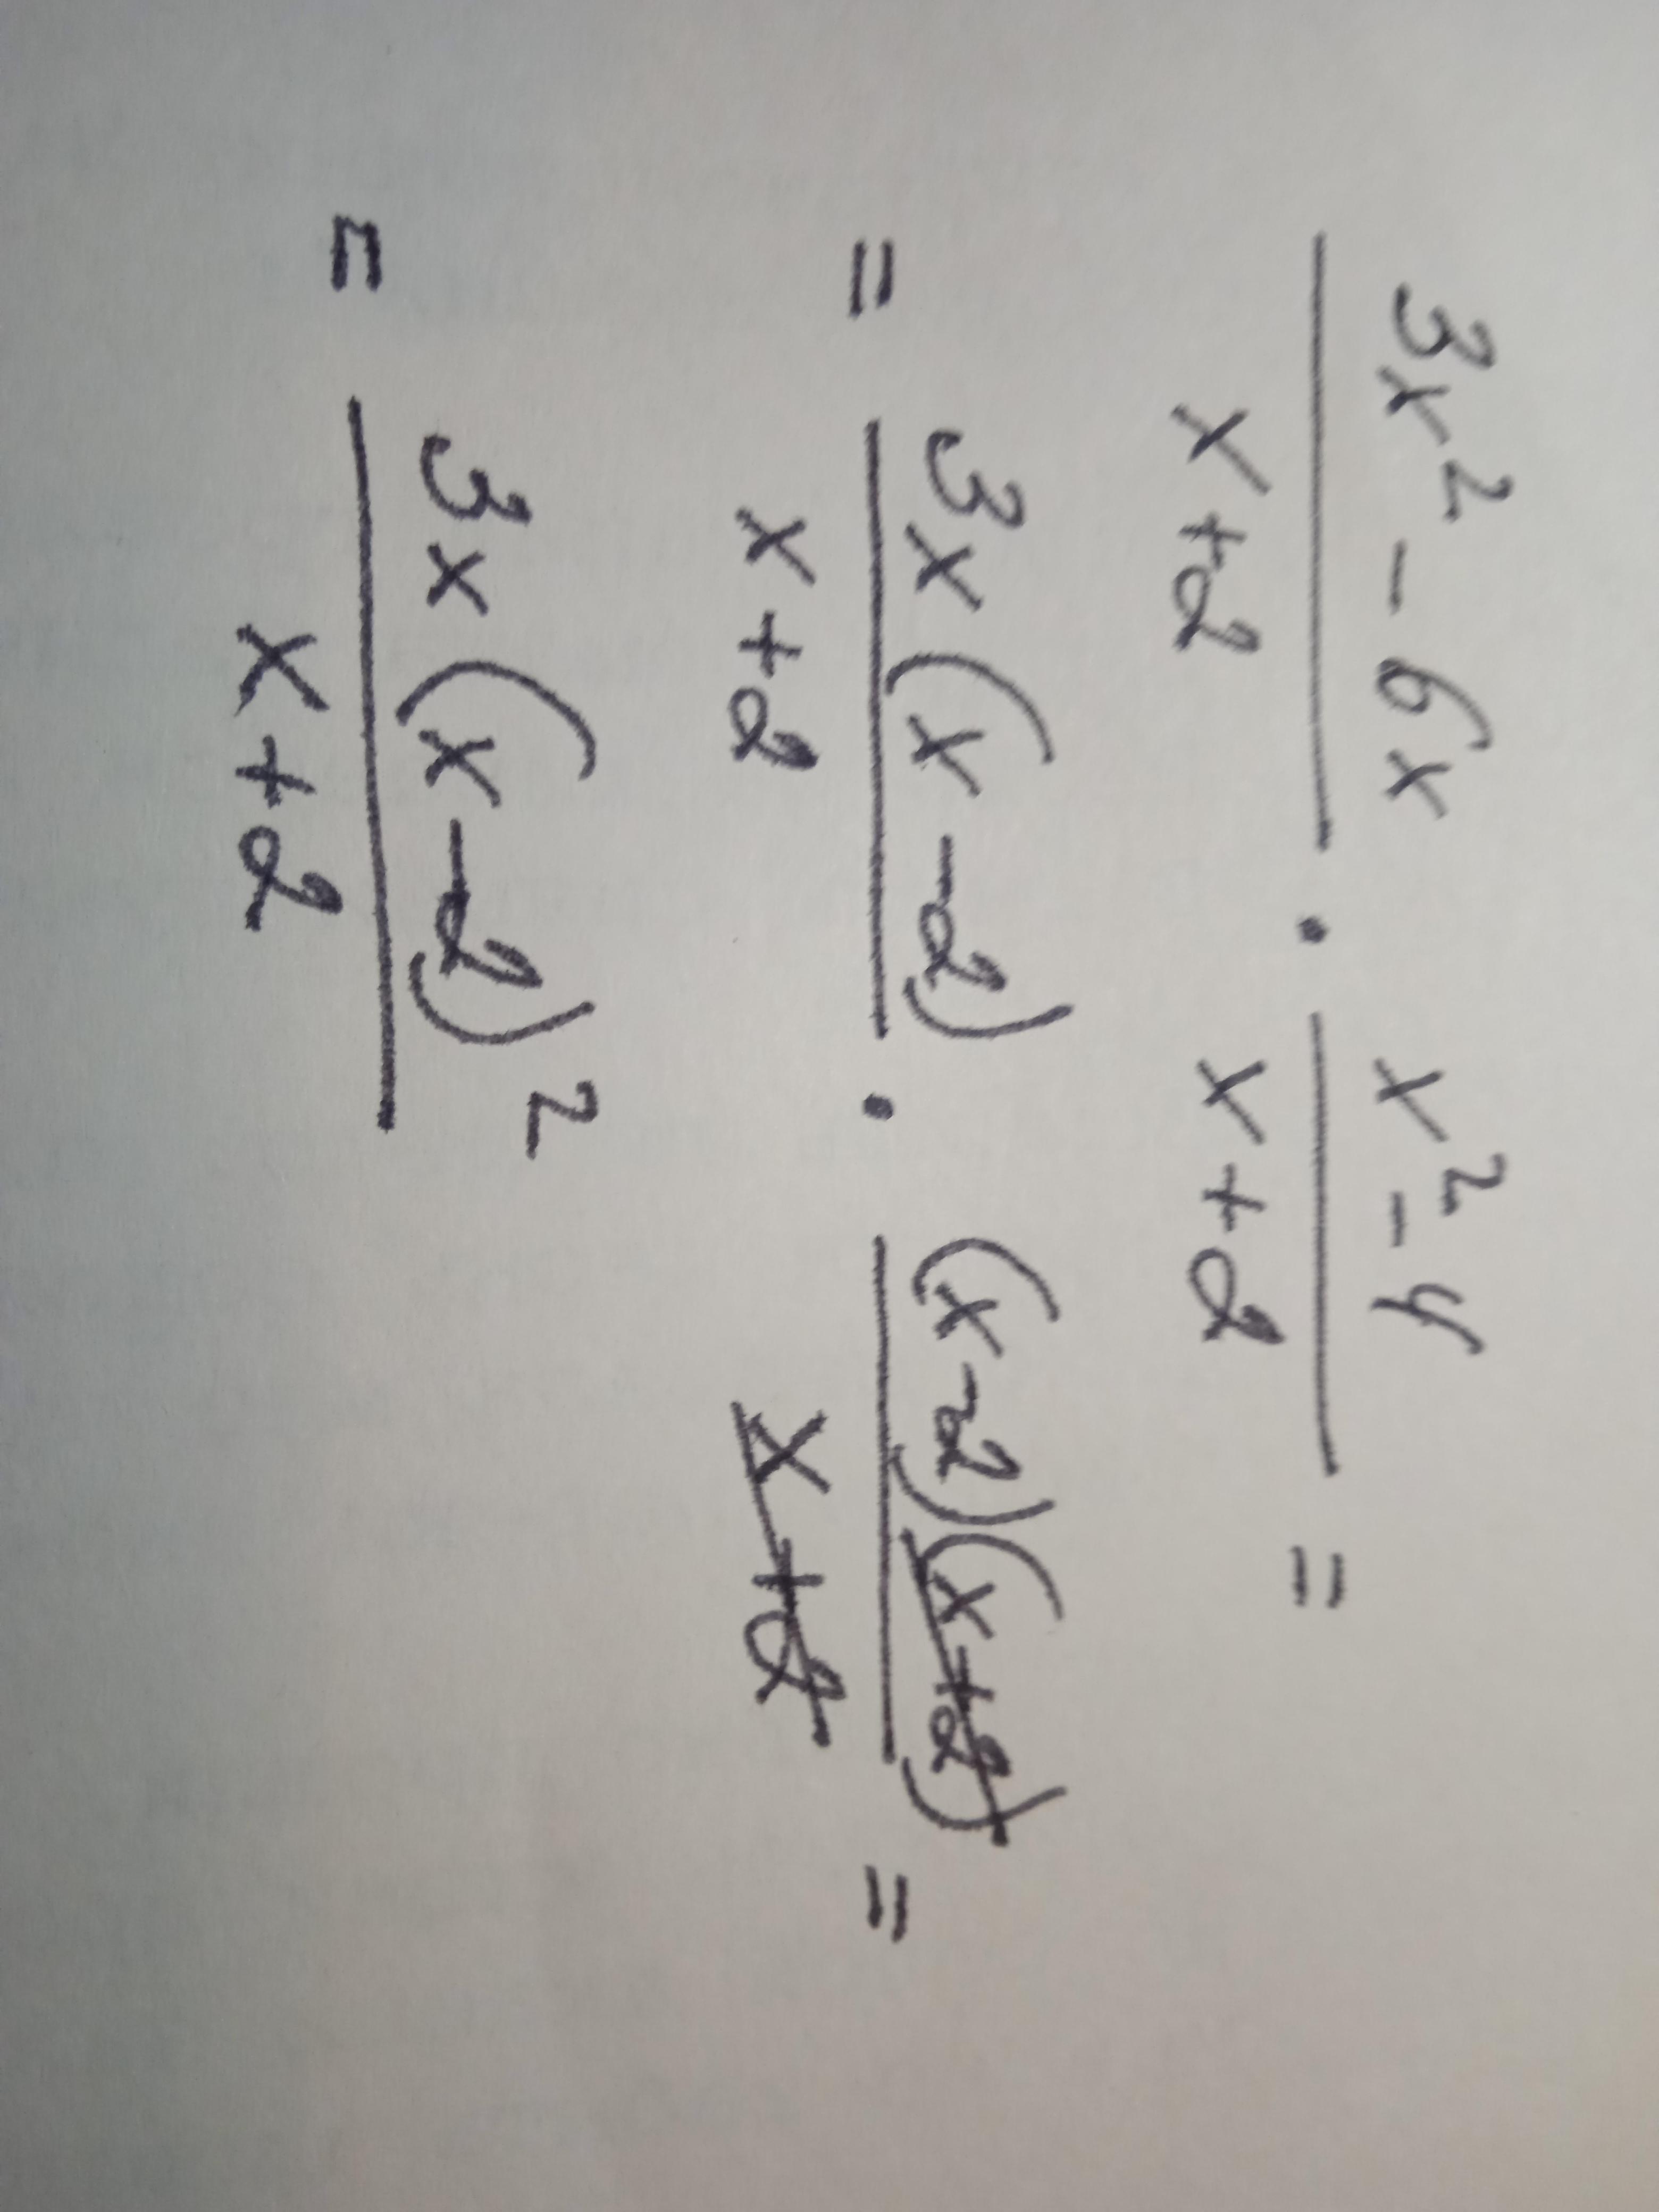 (3x² - 6x)/(x+2) · (x² - 4)/(x+2) =
= (3x(x-2))/(x+2) · ((x-2)(x+2))/(x+2) =
= (3x(x-2)²)/(x+2)